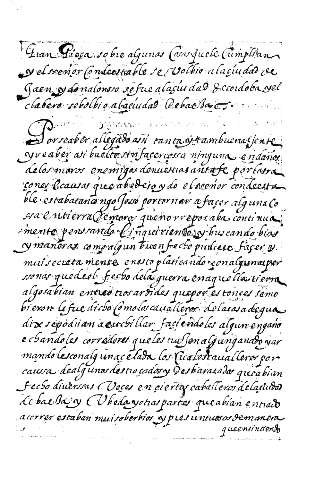 gran Priessa sobre algunas Cosas que le Cumplian
y el señor Condeestable se bolbio a la çiudad de
Jaen y don alonso se fue a la çiudad de cordoba y el
clabero se bolbio a la çiudad de baeDa
Por aber allegado assi tanta y tan buena gente
y se aber buelto sin façer cossa ninguna en daño
de los moros enemigos de nuestra santa fe por las ra
çones e causas que ... el señor condeesta
ble estaba tan congojoso por tornar a façer alguna co
ssa en tierra de moros que no rreposaba continua
mente pensando e inquiriendo y buscando bias
y maneras como algun buen fecho pudiese façer y
mui secretamente en esto platicando con algunas per
sonas que del fecho de la guerra en aquella tierra
algo sabian en ... ardides que por estonçes se mo
bieron le fue dicho como los cavalleros de la casa de gua
dix se podrian acuchillar façiendoles algun engaño
e echandoles corredores que les ... y ar
mandoles con alguna çelada los quales cavalleros por
caussa de algunos destroços y desbaratos que abian
fecho diversas veçes en çiertos caballeros de la çiudad
de baeDa y Ubeda y otras partes que abian entrado
a correr estaban mui soberbios y pressuntuosos de manera
que en siendo